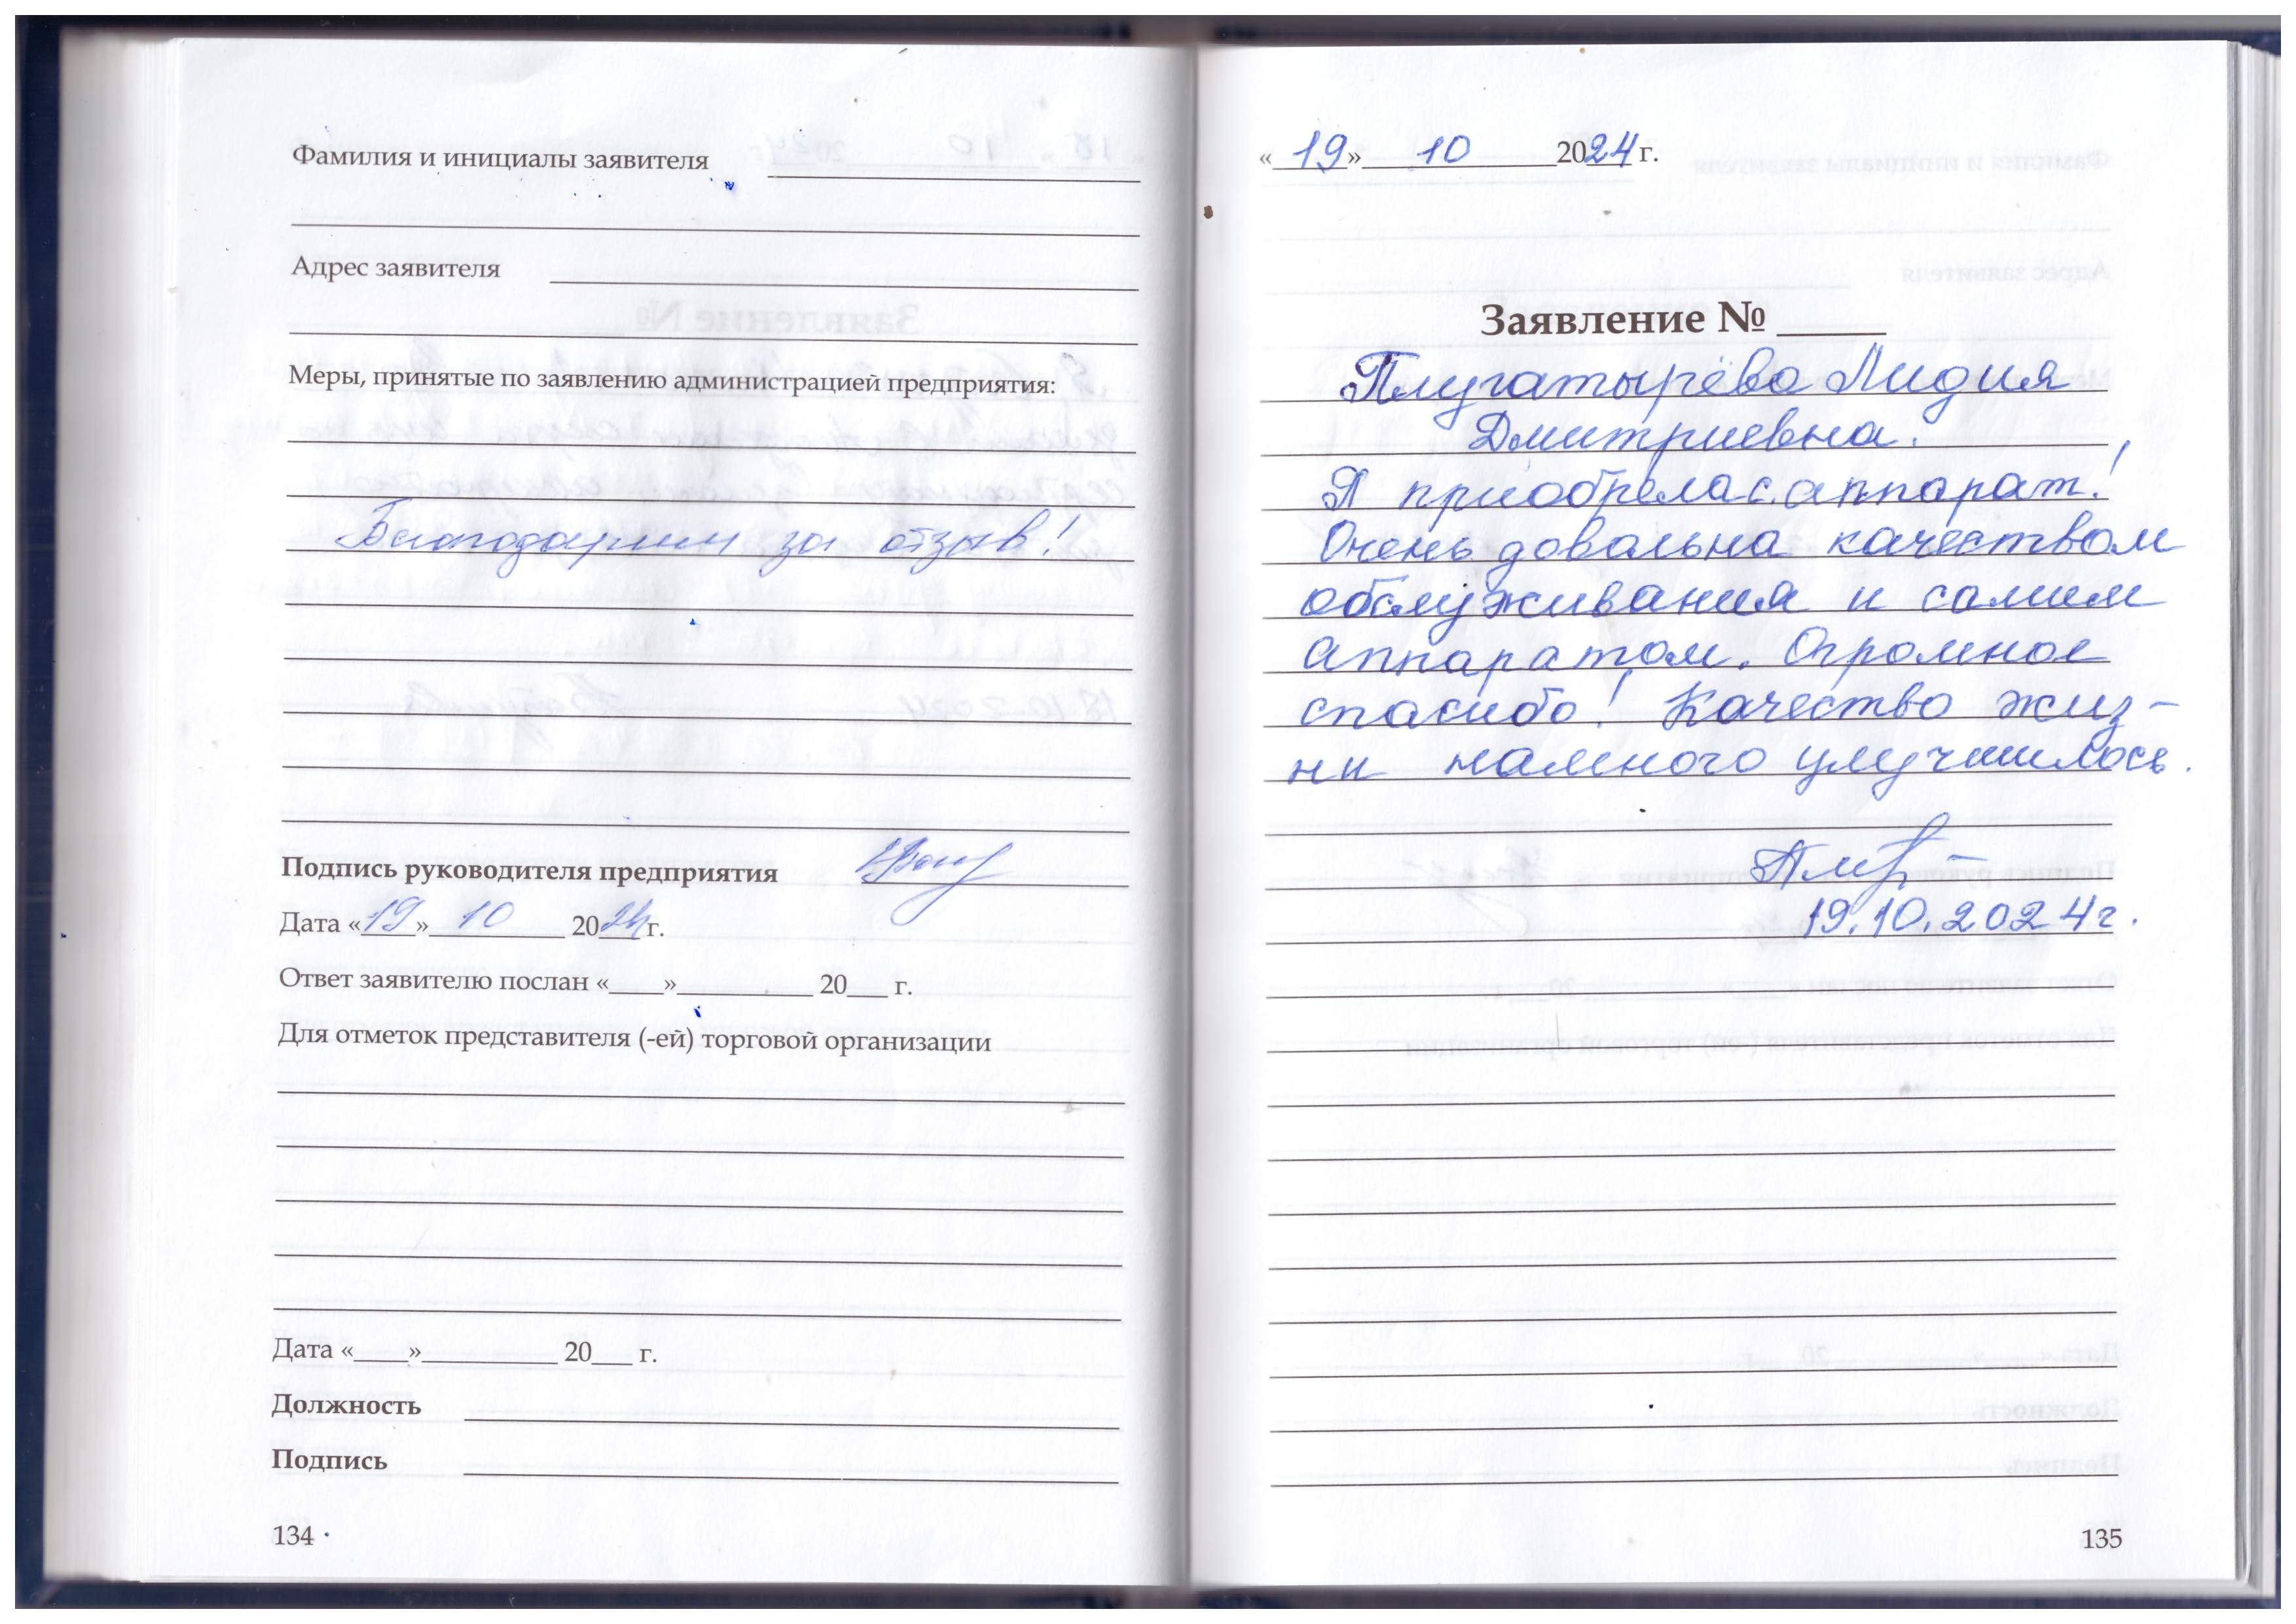 Фамилия и инициалы заявителя
Адрес заявителя
Меры, принятые по заявлению администрацией предприятия:
Благодарим за отзыв!
Подпись руководителя предприятия
Дата «19» 10 2024 г.
Ответ заявителю послан «____»__________ 20___ г.
Для отметок представителя (-ей) торговой организации
Дата «____»__________ 20___ г.
Должность
Подпись
134
«19» 10 2024 г.
Заявление № _____
Плугатырёва Лидия
Дмитриевна.
Я приобрела с. аппарат!
Очень довольна качеством
обслуживания и самим
аппаратом. Огромное
спасибо! Качество жиз-
ни намного улучшилось.
19.10.2024г.
135